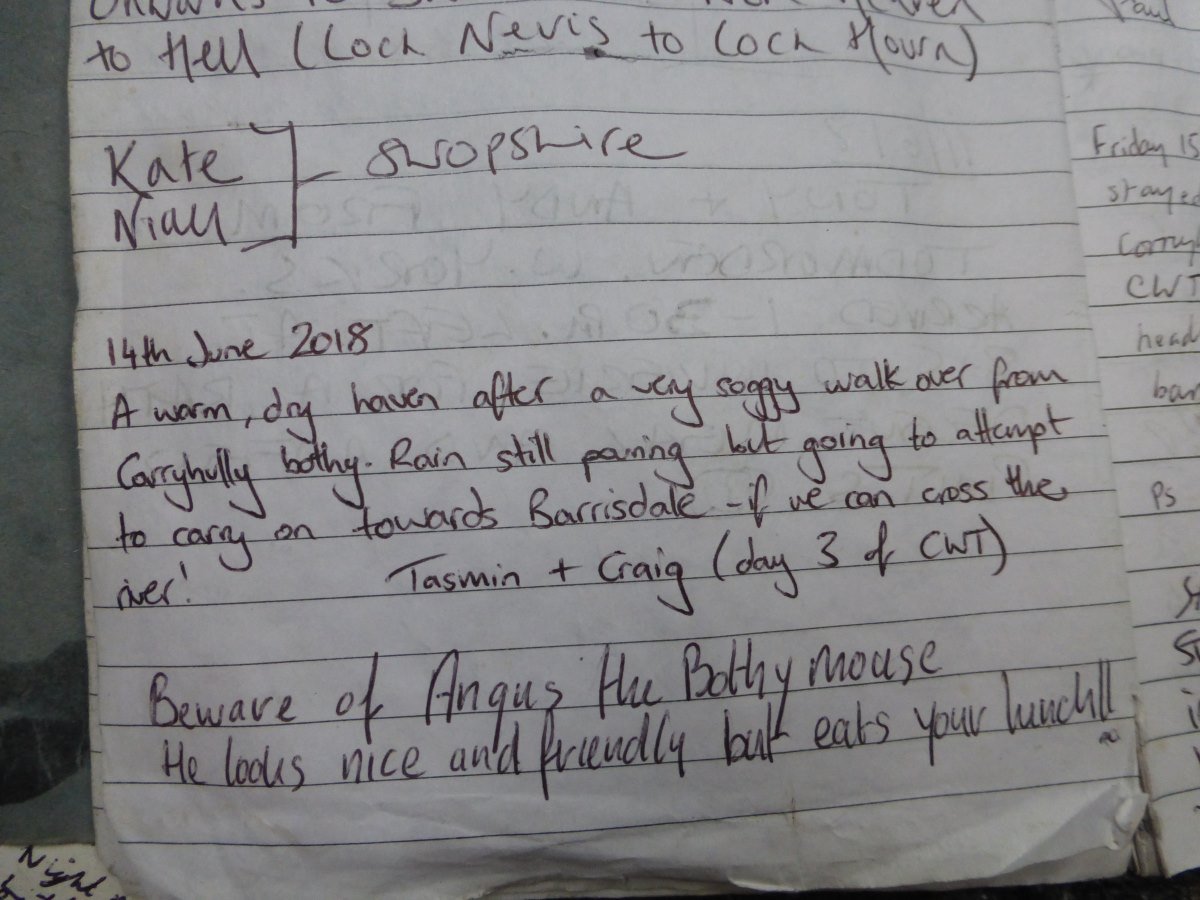 to Hell (Loch Nevis to Loch Hourn)
Kate
Niall
Shropshire
14th June 2018
A warm, dry haven after a very soggy walk over from
Corryhully bothy. Rain still pouring but going to attempt
to carry on towards Barrisdale - if we can cross the
river!
Tasmin + Craig (day 3 of CWT)
Beware of Angus the Bothy mouse
He looks nice and friendly but eats your lunch!!
Paul
Friday 15
CWT
head
Ps
Night